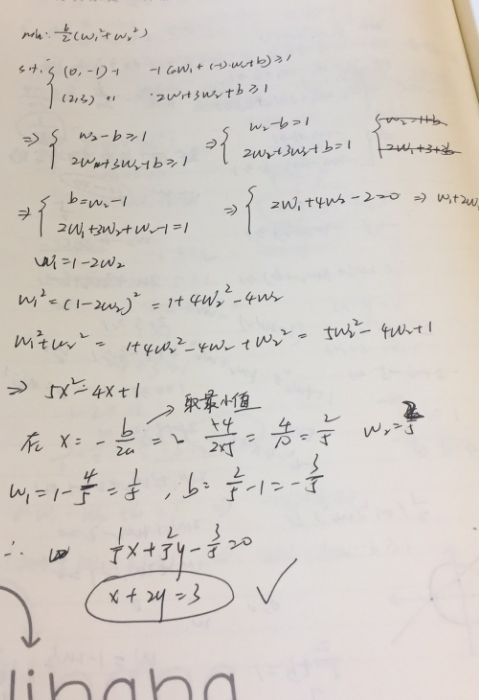 min: ½(w₁²+w₂²)
s.t. { (0,-1) -1 -1(0w₁+(-1)w₂+b)≥1
(2,3) 2w₁+3w₂+b≥1
⇒ { w₂-b≥1 ⇒ { w₂-b=1
2w₁+3w₂+b≥1 2w₂+3w₂+b=1
⇒ { b=w₂-1 ⇒ { 2w₁+4w₂-2=0 ⇒ w₁+2w₂
2w₁+3w₂+w₂-1=1
w₁=1-2w₂
w₁²=(1-2w₂)²=1+4w₂²-4w₂
w₁²+w₂²= 1+4w₂²-4w₂+w₂²= 5w₂²-4w₂+1
⇒ 5x²-4x+1
→ 取最小值
在 x=-b/2a = +4/2×5 = 4/10 = 2/5 w₂=
w₁=1-4/5=1/5, b=2/5-1=-3/5
∴ 1/5x+2/5y-3/5=0
x+2y=3 ✓